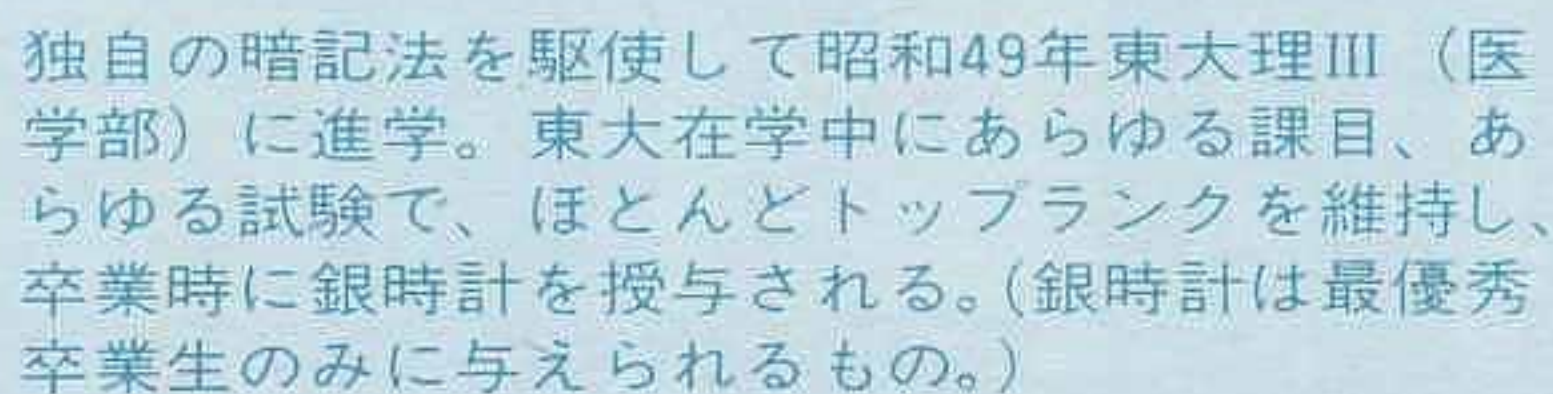 独自の暗記法を駆使して昭和49年東大理III（医
学部）に進学。東大在学中にあらゆる課目、あ
らゆる試験で、ほとんどトップランクを維持し、
卒業時に銀時計を授与される。(銀時計は最優秀
卒業生のみに与えられるもの。)